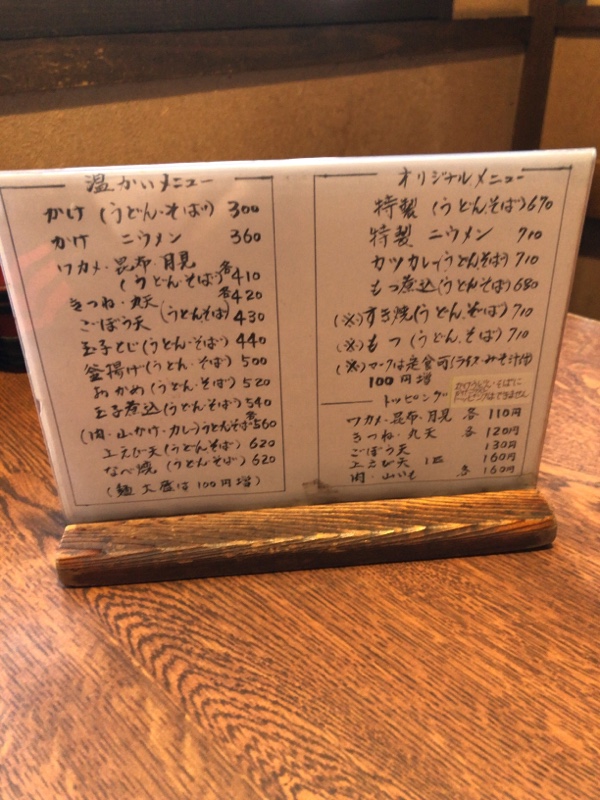 温かいメニュー
かけ (うどん・そば) 300
かけ ニウメン 360
ワカメ・昆布・月見
(うどん・そば) 各410
きつね・丸天 (うどん・そば) 各420
ごぼう天 430
玉子とじ(うどん・そば) 440
釜揚げ(うどん・そば) 500
おかめ(うどん・そば) 520
玉子煮込(うどん・そば) 540
(肉・山かけ・カレー)うどんそば各560
上えび天(うどん・そば) 620
なべ焼 (うどん・そば) 620
(麺大盛は100円増)
オリジナルメニュー
特製 (うどん・そば) 670
特製 ニウメン 710
カツカレー(うどん・そば) 710
もつ煮込(うどん・そば) 680
(※)すき焼(うどん・そば) 710
(※)もつ(うどん・そば) 710
(※)マークは定食可(ライス・みそ汁付)
100円増
トッピング
ワカメ・昆布・月見 各 110円
きつね・丸天 各 120円
ごぼう天 130円
上えび天 1匹 160円
肉・山いも 各 160円